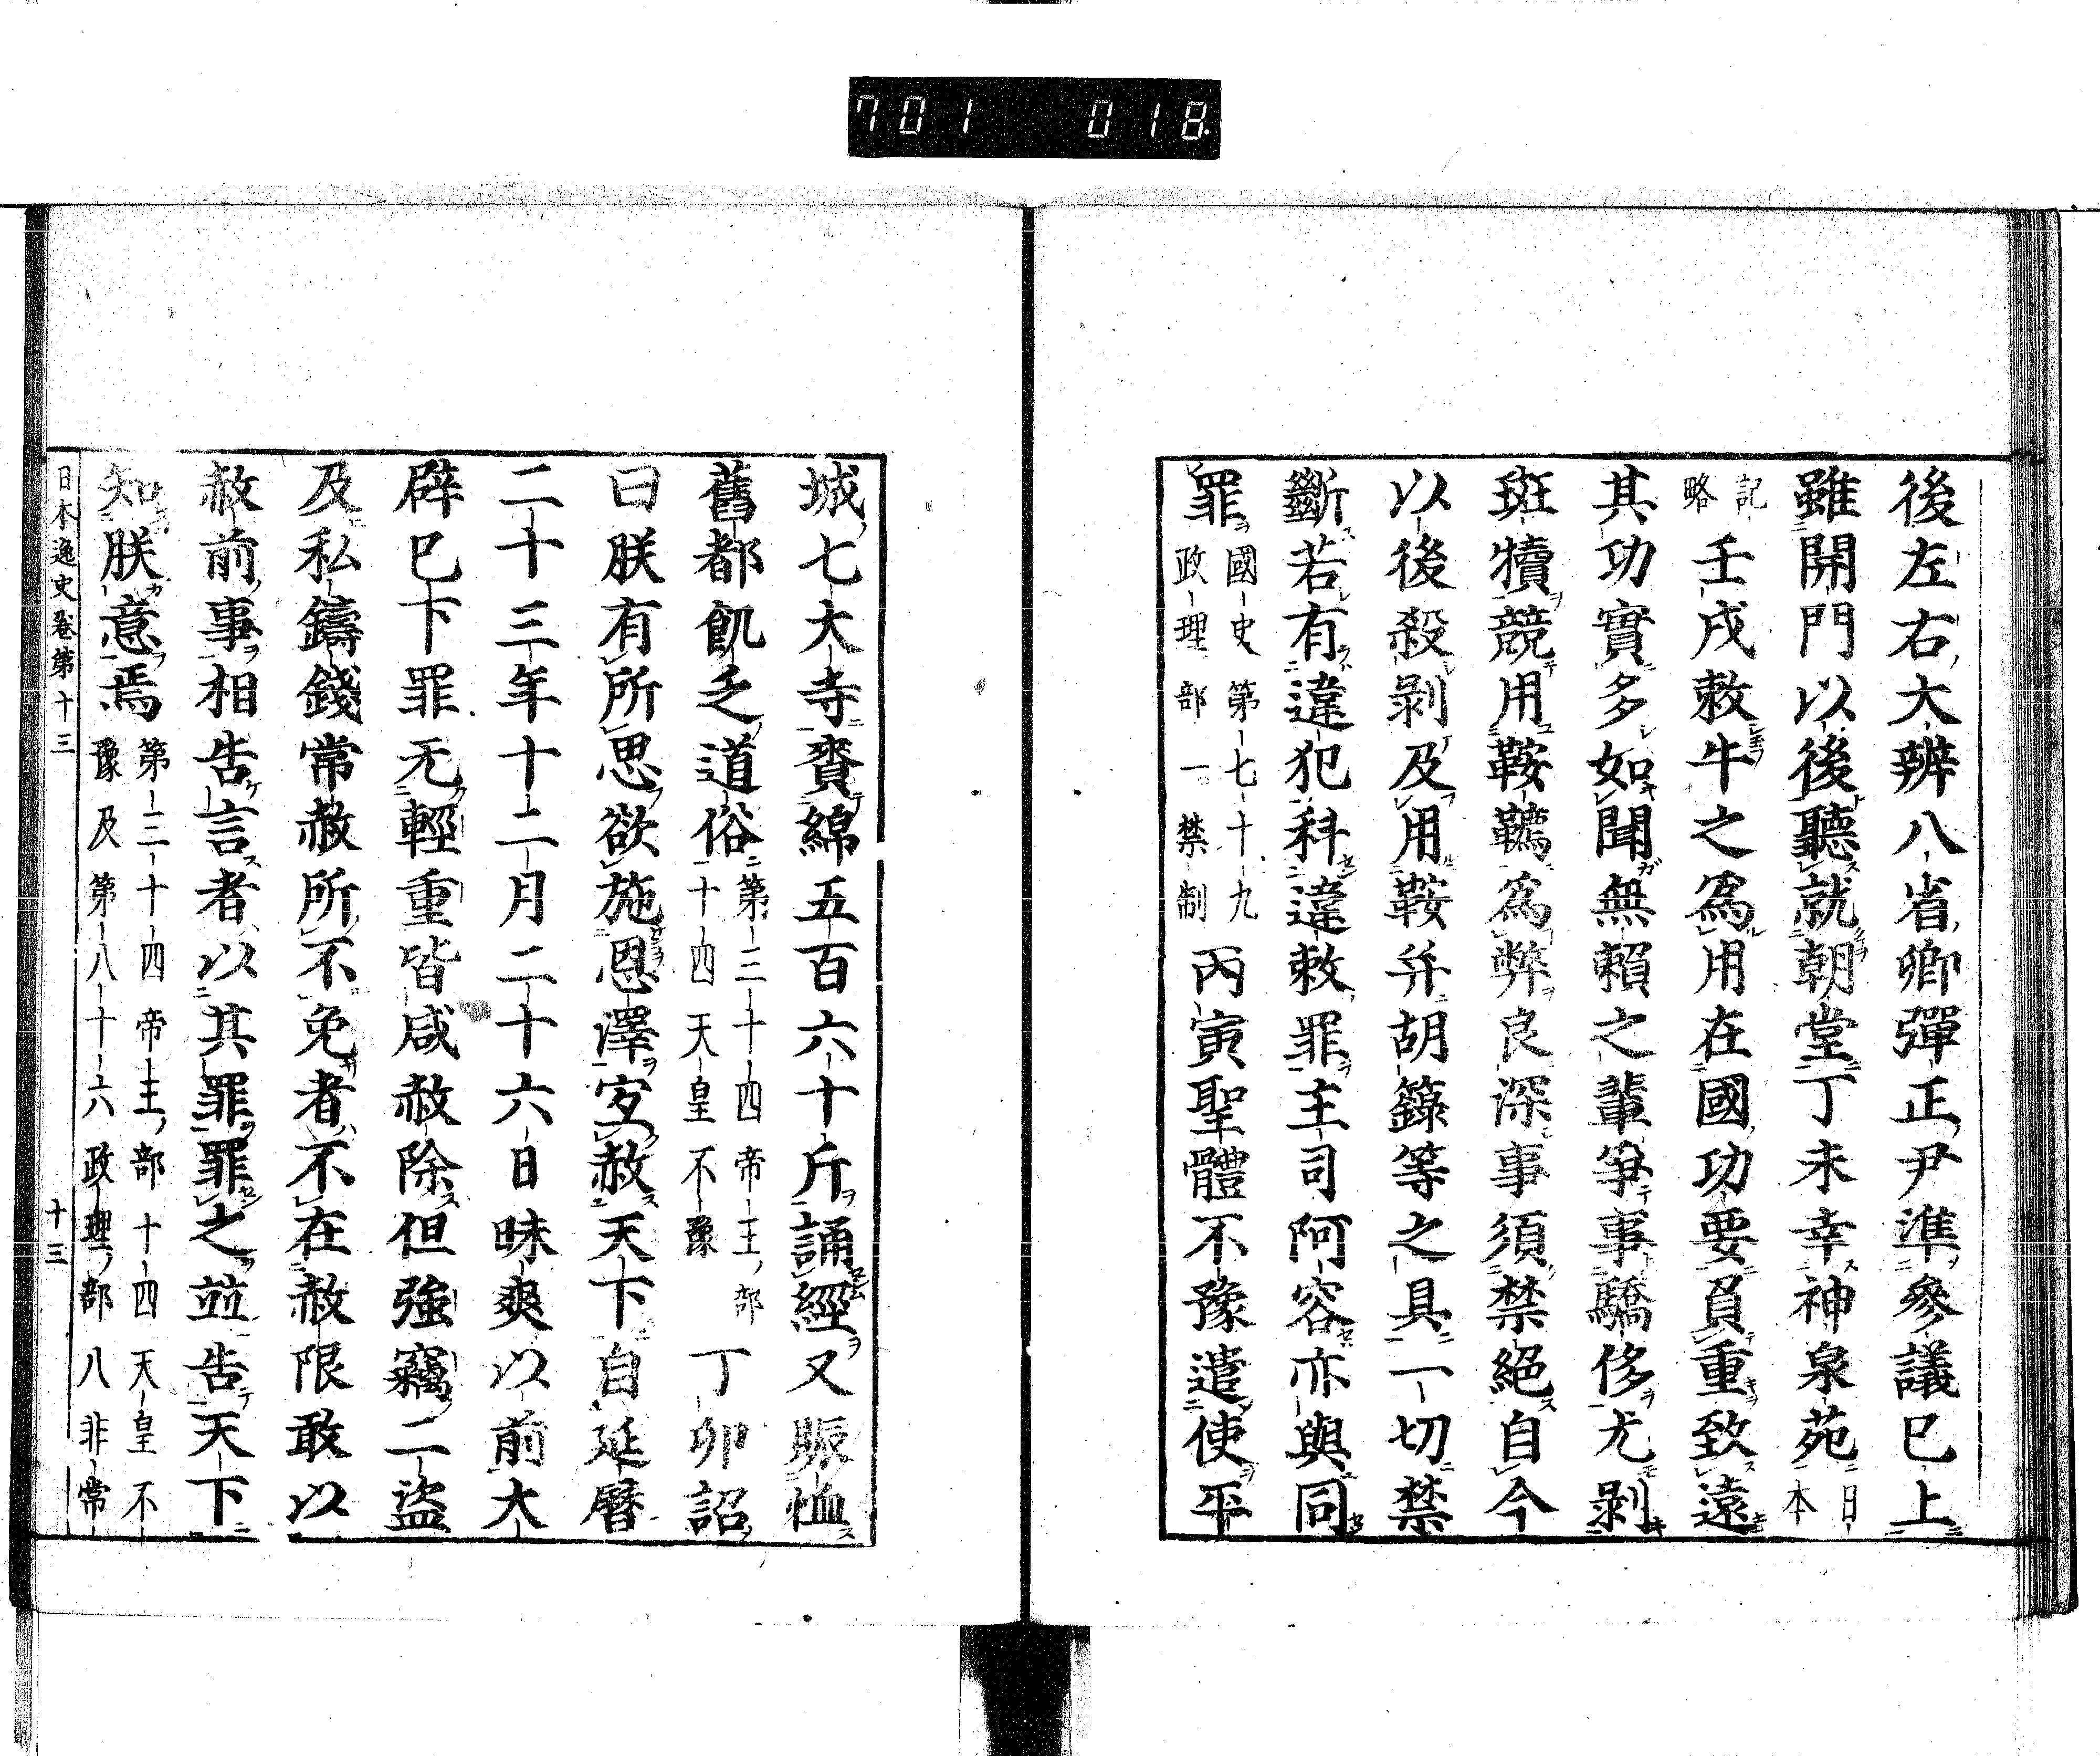 701 018
後左右大辨八省卿彈正尹準參議已上
雖開門以後聽就朝堂丁未幸神泉苑日本
記略壬戌敕牛之爲用在國功要負重致遠
其功實多如聞無賴之輩爭事驕侈尤剥
斑犢競用鞍韉爲弊良深事須禁絕自今
以後殺剥及用鞍并胡籙等之具一切禁
斷若有違犯科違敕罪主司阿容亦與同
罪國史第七十九政理部一禁制丙寅聖體不豫遣使平
城七大寺賚綿五百六十斤誦經又賑恤
舊都飢乏道俗第三十四帝王部十四天皇不豫丁卯詔
曰朕有所思欲施恩澤宐赦天下自延曆
二十三年十二月二十六日昧爽以前大
辟已下罪无輕重皆咸赦除但強竊二盜
及私鑄錢常赦所不免者不在赦限敢以
赦前事相告言者以其罪罪之竝告天下
知朕意焉第三十四帝王部十四天皇不豫及第八十六政理部八非常
日本逸史卷第十三 十三